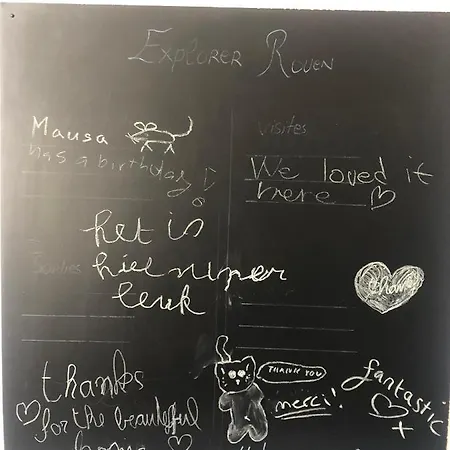 Explorer Rouen
Mausa
has a birthday!
Visites
We loved it
here
het is
hiel super
leuk
Sorties
thanks
for the beautiful
home
THANK YOU
merci!
fantastic